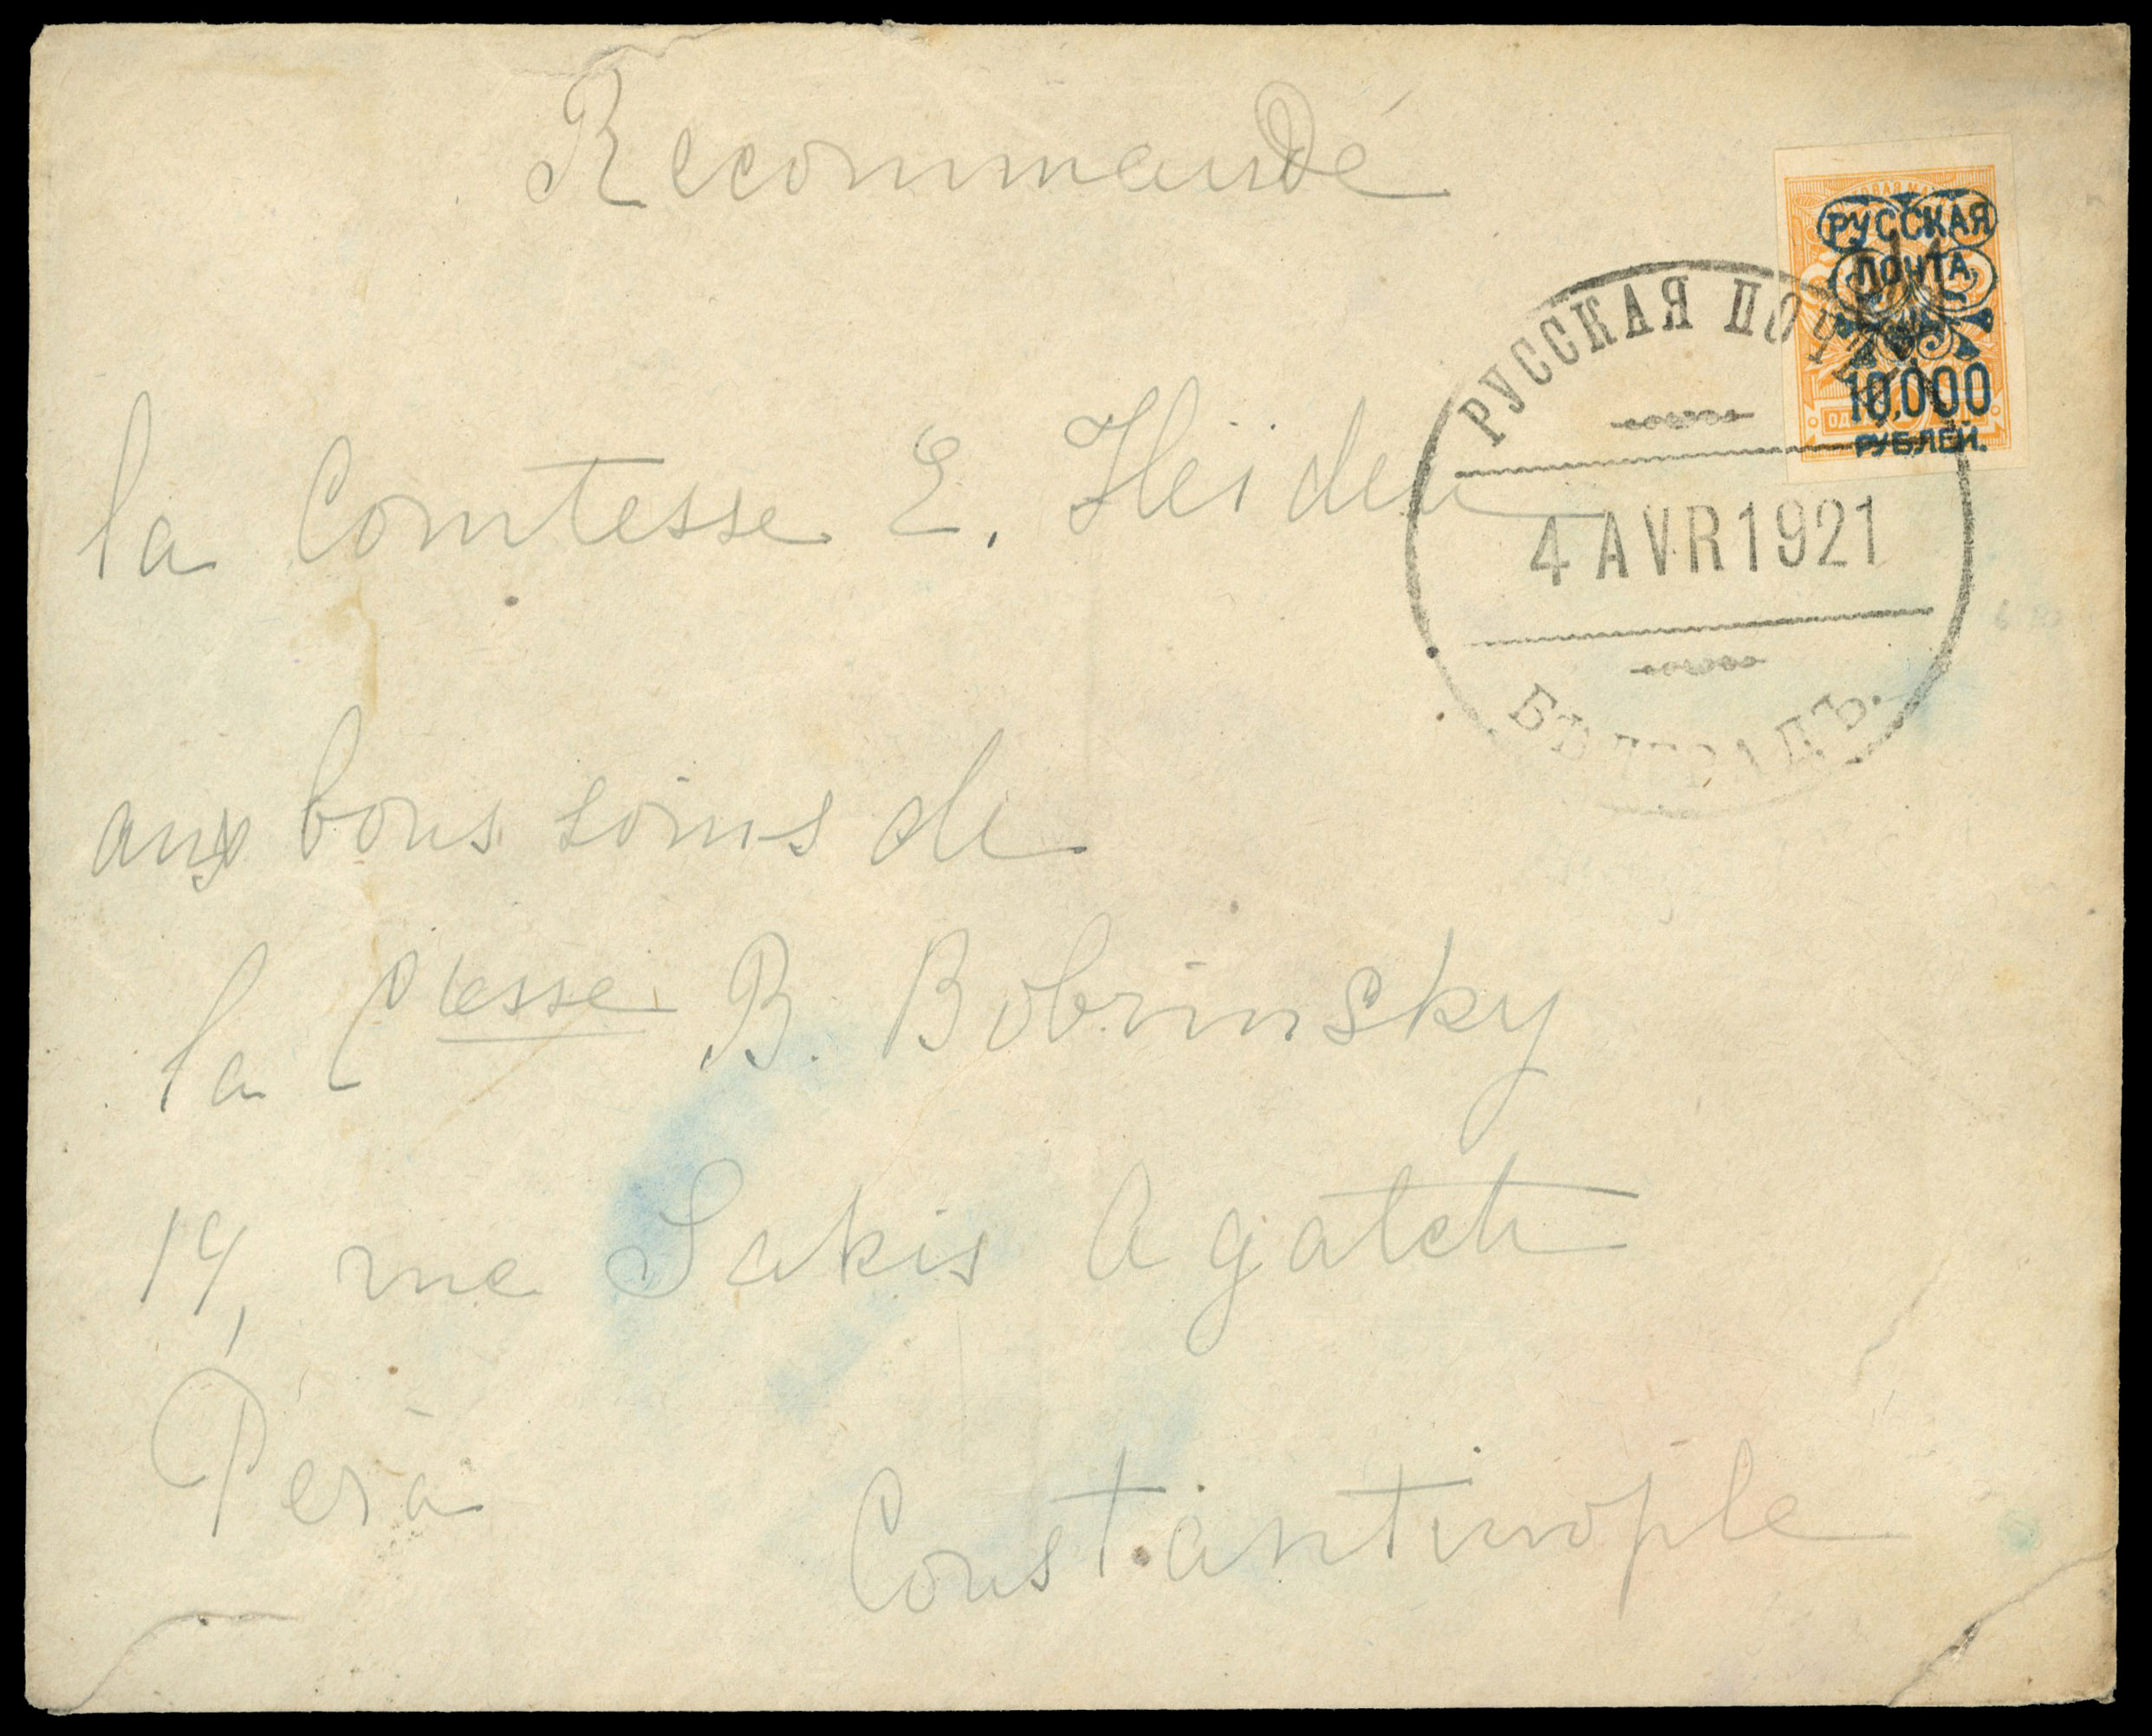 Recommandé
РУССКАЯ
ПОЧТА
10,000
РУБЛЕЙ.
РУССКАЯ ПОЧТА
4 AVR 1921
БѢЛГРАДЪ.
la Comtesse E. Heiden
aux bons soins de
la Ctesse B. Bobrinsky
14, rue Sakis Agatch
Péra
Constantinople